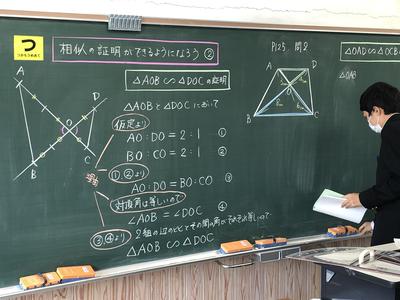 つ
つかもうめあて
相似の証明ができるようになろう ②
△AOB∽△DOCの証明
△AOBと△DOCにおいて
仮定より
AO:DO=2:1 ①
BO:CO=2:1 ②
①,②より
AO:DO=BO:CO ③
対頂角は等しいので
∠AOB=∠DOC ④
③④より
2組の辺の比とその間の角がそれぞれ等しいので
△AOB∽△DOC
A
D
O
B
C
P125 問2
A
D
O
B
C
△OAD∽△OCB
△OAD